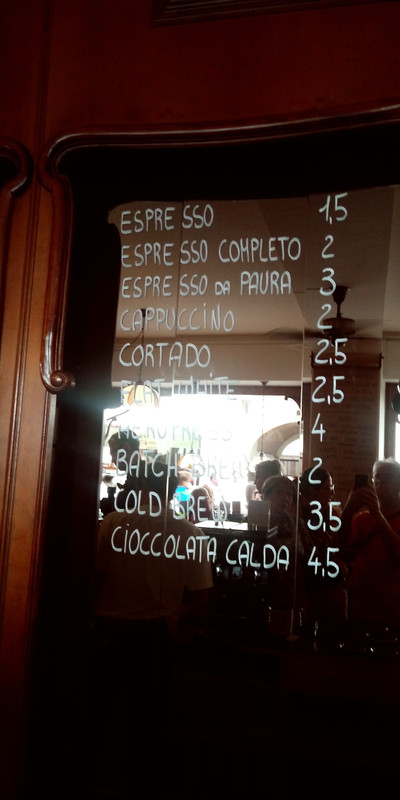 ESPRESSO 1,5
ESPRESSO COMPLETO 2
ESPRESSO DA PAURA 3
CAPPUCCINO 2
CORTADO 2,5
FLAT WHITE 2,5
AEROPRESS 4
BATCH BREW 2
COLD BREW 3,5
CIOCCOLATA CALDA 4,5